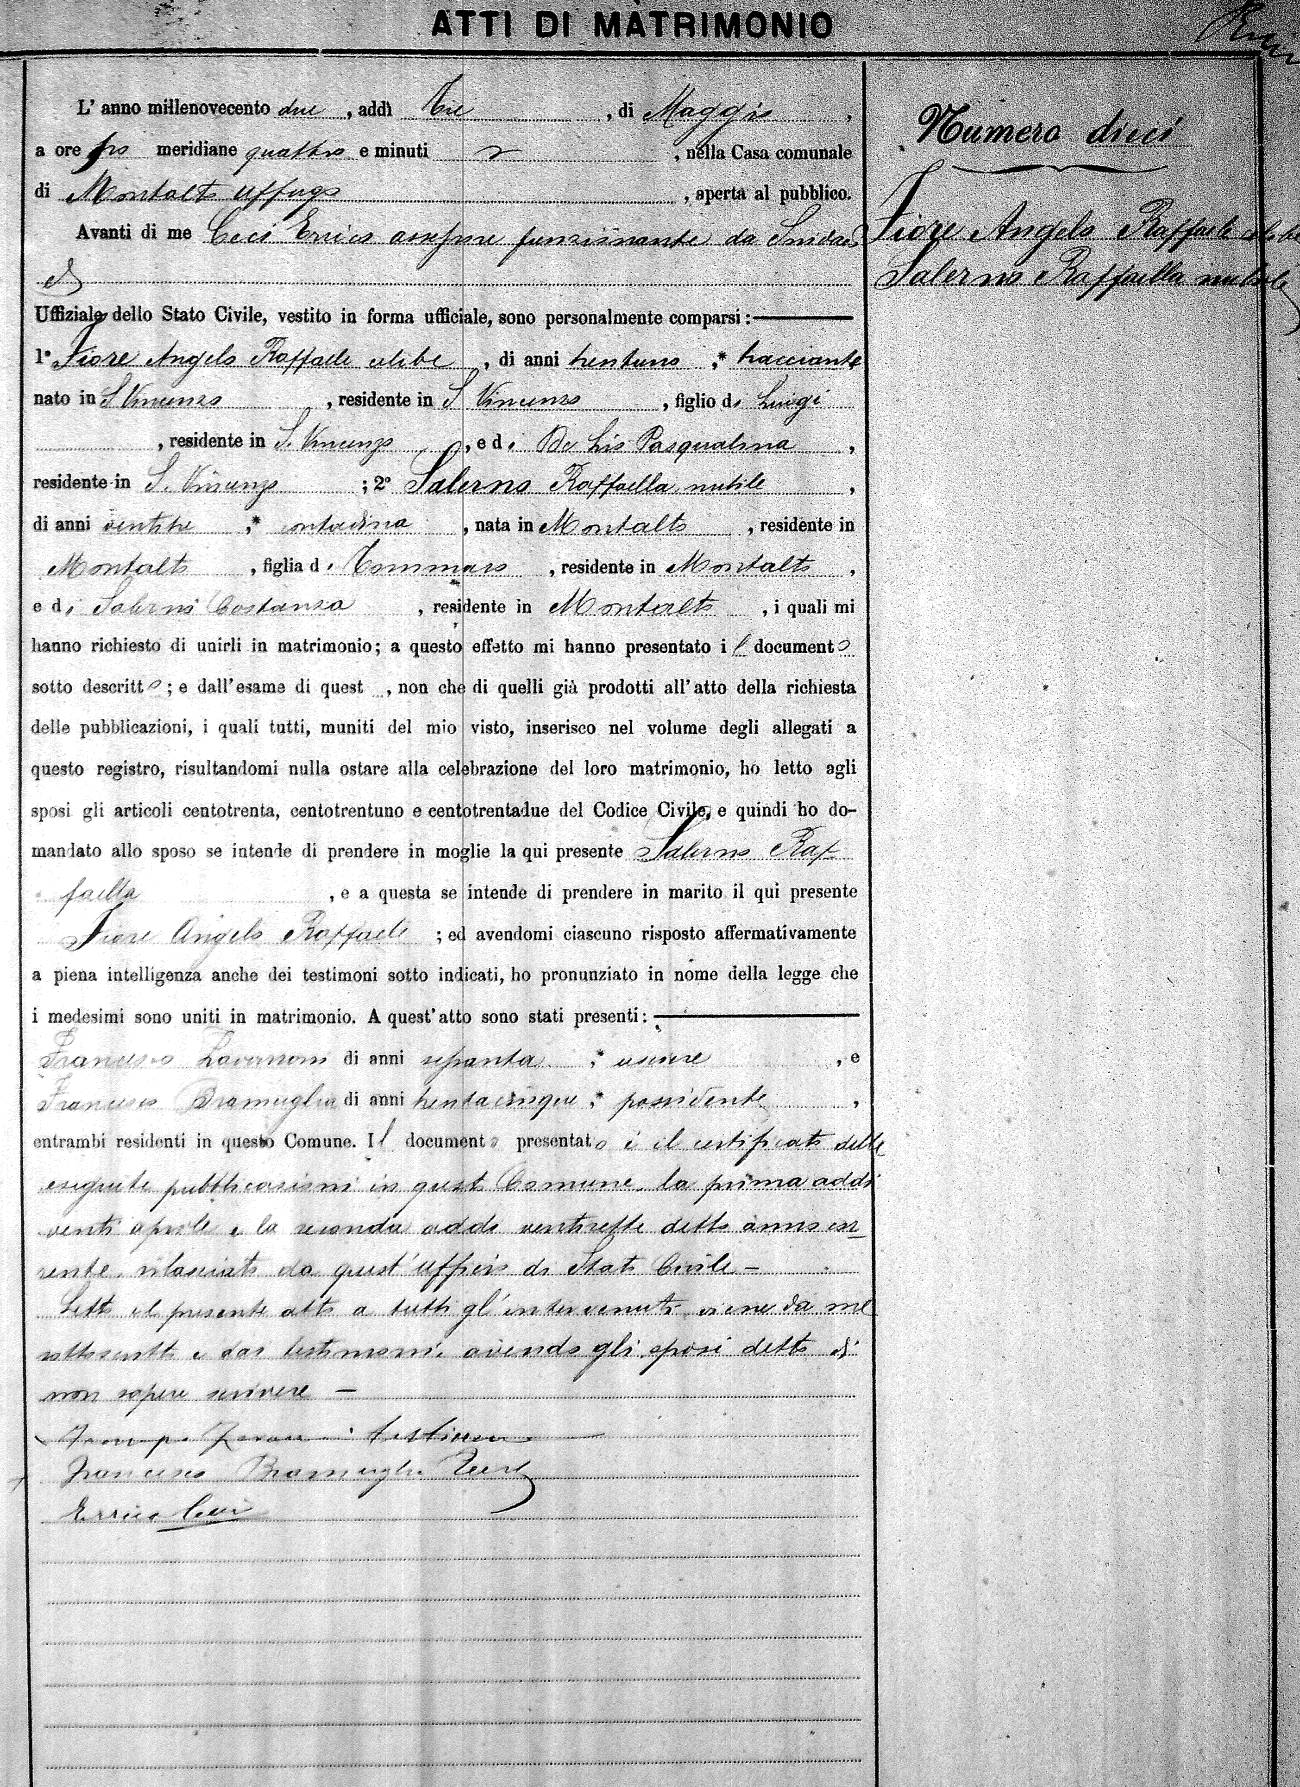 ATTI DI MATRIMONIO
Numero dieci
Fiore Angelo Raffaele celibe
Salerno Raffaella nubile
L' anno millenovecento due, addì tre, di Maggio,
a ore pos meridiane quattro e minuti, nella Casa comunale
di Montalto Uffugo, aperta al pubblico.
Avanti di me Ceci Errico assessore funzionante da Sindaco
Uffiziale dello Stato Civile, vestito in forma ufficiale, sono personalmente comparsi:
1° Fiore Angelo Raffaele celibe, di anni trentuno, * bracciante
nato in S. Vincenzo, residente in S. Vincenzo, figlio di Luigi
, residente in S. Vincenzo, e di De Lio Pasqualina,
residente in S. Vincenzo; 2° Salerno Raffaella nubile,
di anni ventitre, * contadina, nata in Montalto, residente in
Montalto, figlia di Tommaso, residente in Montalto,
e di Salerni Costanza, residente in Montalto, i quali mi
hanno richiesto di unirli in matrimonio; a questo effetto mi hanno presentato il documento
sotto descritto; e dall'esame di quest, non che di quelli già prodotti all'atto della richiesta
delle pubblicazioni, i quali tutti, muniti del mio visto, inserisco nel volume degli allegati a
questo registro, risultandomi nulla ostare alla celebrazione del loro matrimonio, ho letto agli
sposi gli articoli centotrenta, centotrentuno e centotrentadue del Codice Civile, e quindi ho do-
mandato allo sposo se intende di prendere in moglie la qui presente Salerno Raf
faella, e a questa se intende di prendere in marito il qui presente
Fiore Angelo Raffaele; ed avendomi ciascuno risposto affermativamente
a piena intelligenza anche dei testimoni sotto indicati, ho pronunziato in nome della legge che
i medesimi sono uniti in matrimonio. A quest'atto sono stati presenti:
Francesco di anni settanta, * usciere, e
Francesco Bramuglia di anni trentacinque, * possidente,
entrambi residenti in questo Comune. Il documento presentato è il certificato delle
eseguite pubblicazioni in questo Comune, la prima addì
venti aprile e la seconda addì ventisette detto anno cor
rente, rilasciato da quest'ufficio di Stato Civile –
Letto il presente atto a tutti gl'intervenuti viene da me
sottoscritto e dai testimoni, avendo gli sposi detto di
non sapere scrivere –
testimone
Francesco Bramuglia Test
Errico Ceci